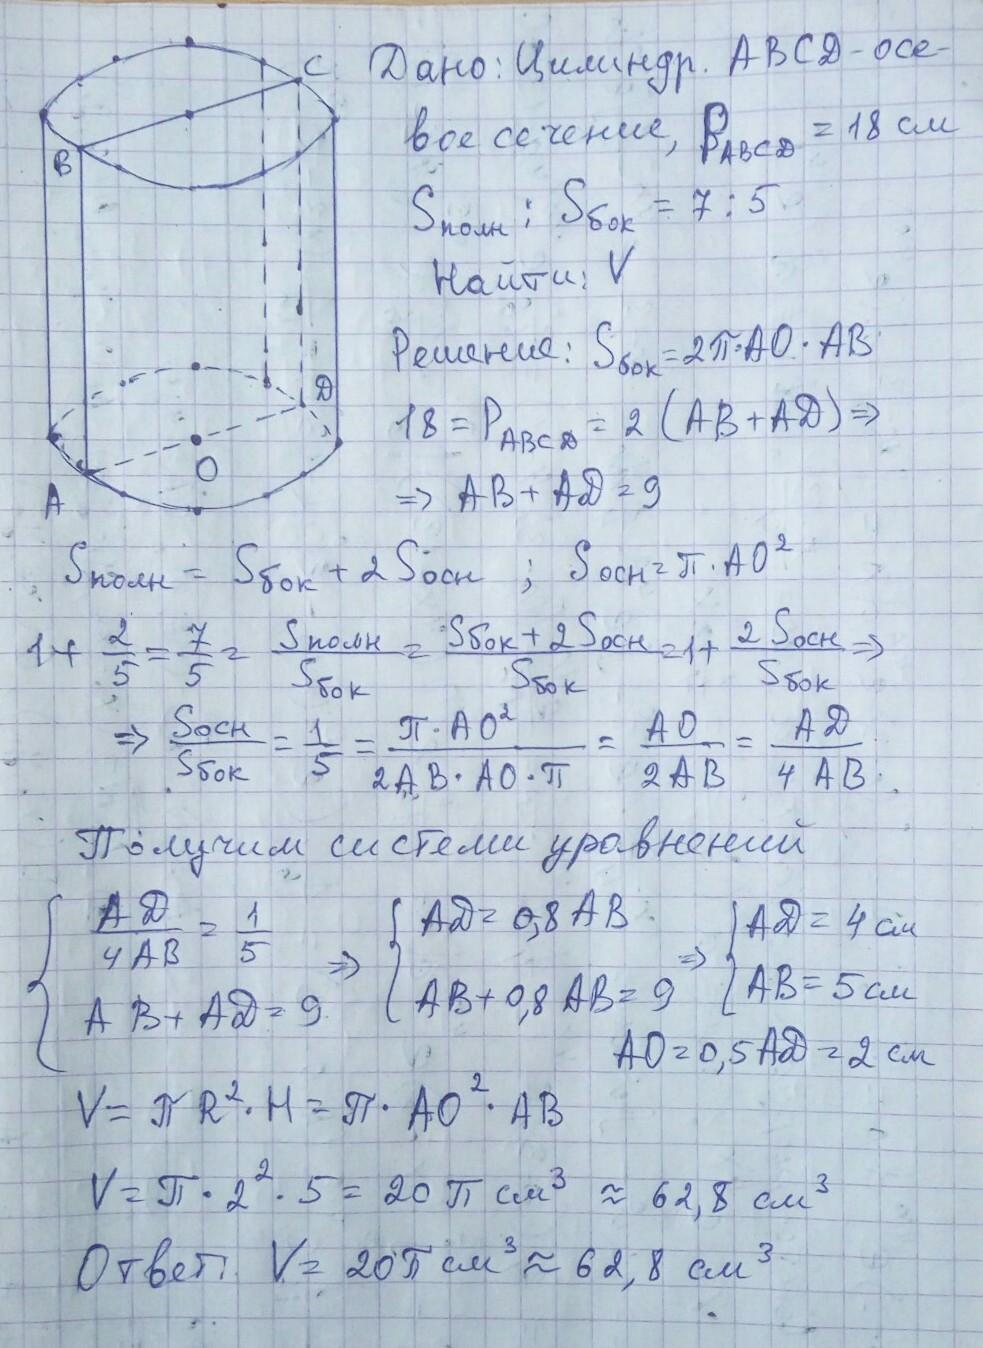 Дано: Цилиндр. ABCD - осе-
вое сечение, P_ABCD = 18 см
Sполн : Sбок = 7 : 5
Найти: V
Решение: Sбок = 2π·AO·AB
18 = P_ABCD = 2 (AB + AD) ⇒
⇒ AB + AD = 9
Sполн = Sбок + 2 Sосн ; Sосн = π·AO²
1 + 2/5 = 7/5 = Sполн/Sбок = (Sбок + 2Sосн)/Sбок = 1 + 2Sосн/Sбок ⇒
⇒ Sосн/Sбок = 1/5 = π·AO²/(2AB·AO·π) = AO/2AB = AD/4AB
Получим системи уравнений
{ AD/4AB = 1/5 ⇒ { AD = 0,8 AB ⇒ { AD = 4 см
AB + AD = 9 AB + 0,8 AB = 9 AB = 5 см
AO = 0,5 AD = 2 см
V = πR²·H = π·AO²·AB
V = π·2²·5 = 20π см³ ≈ 62,8 см³
Ответ: V = 20π см³ ≈ 62,8 см³
C
B
D
O
A